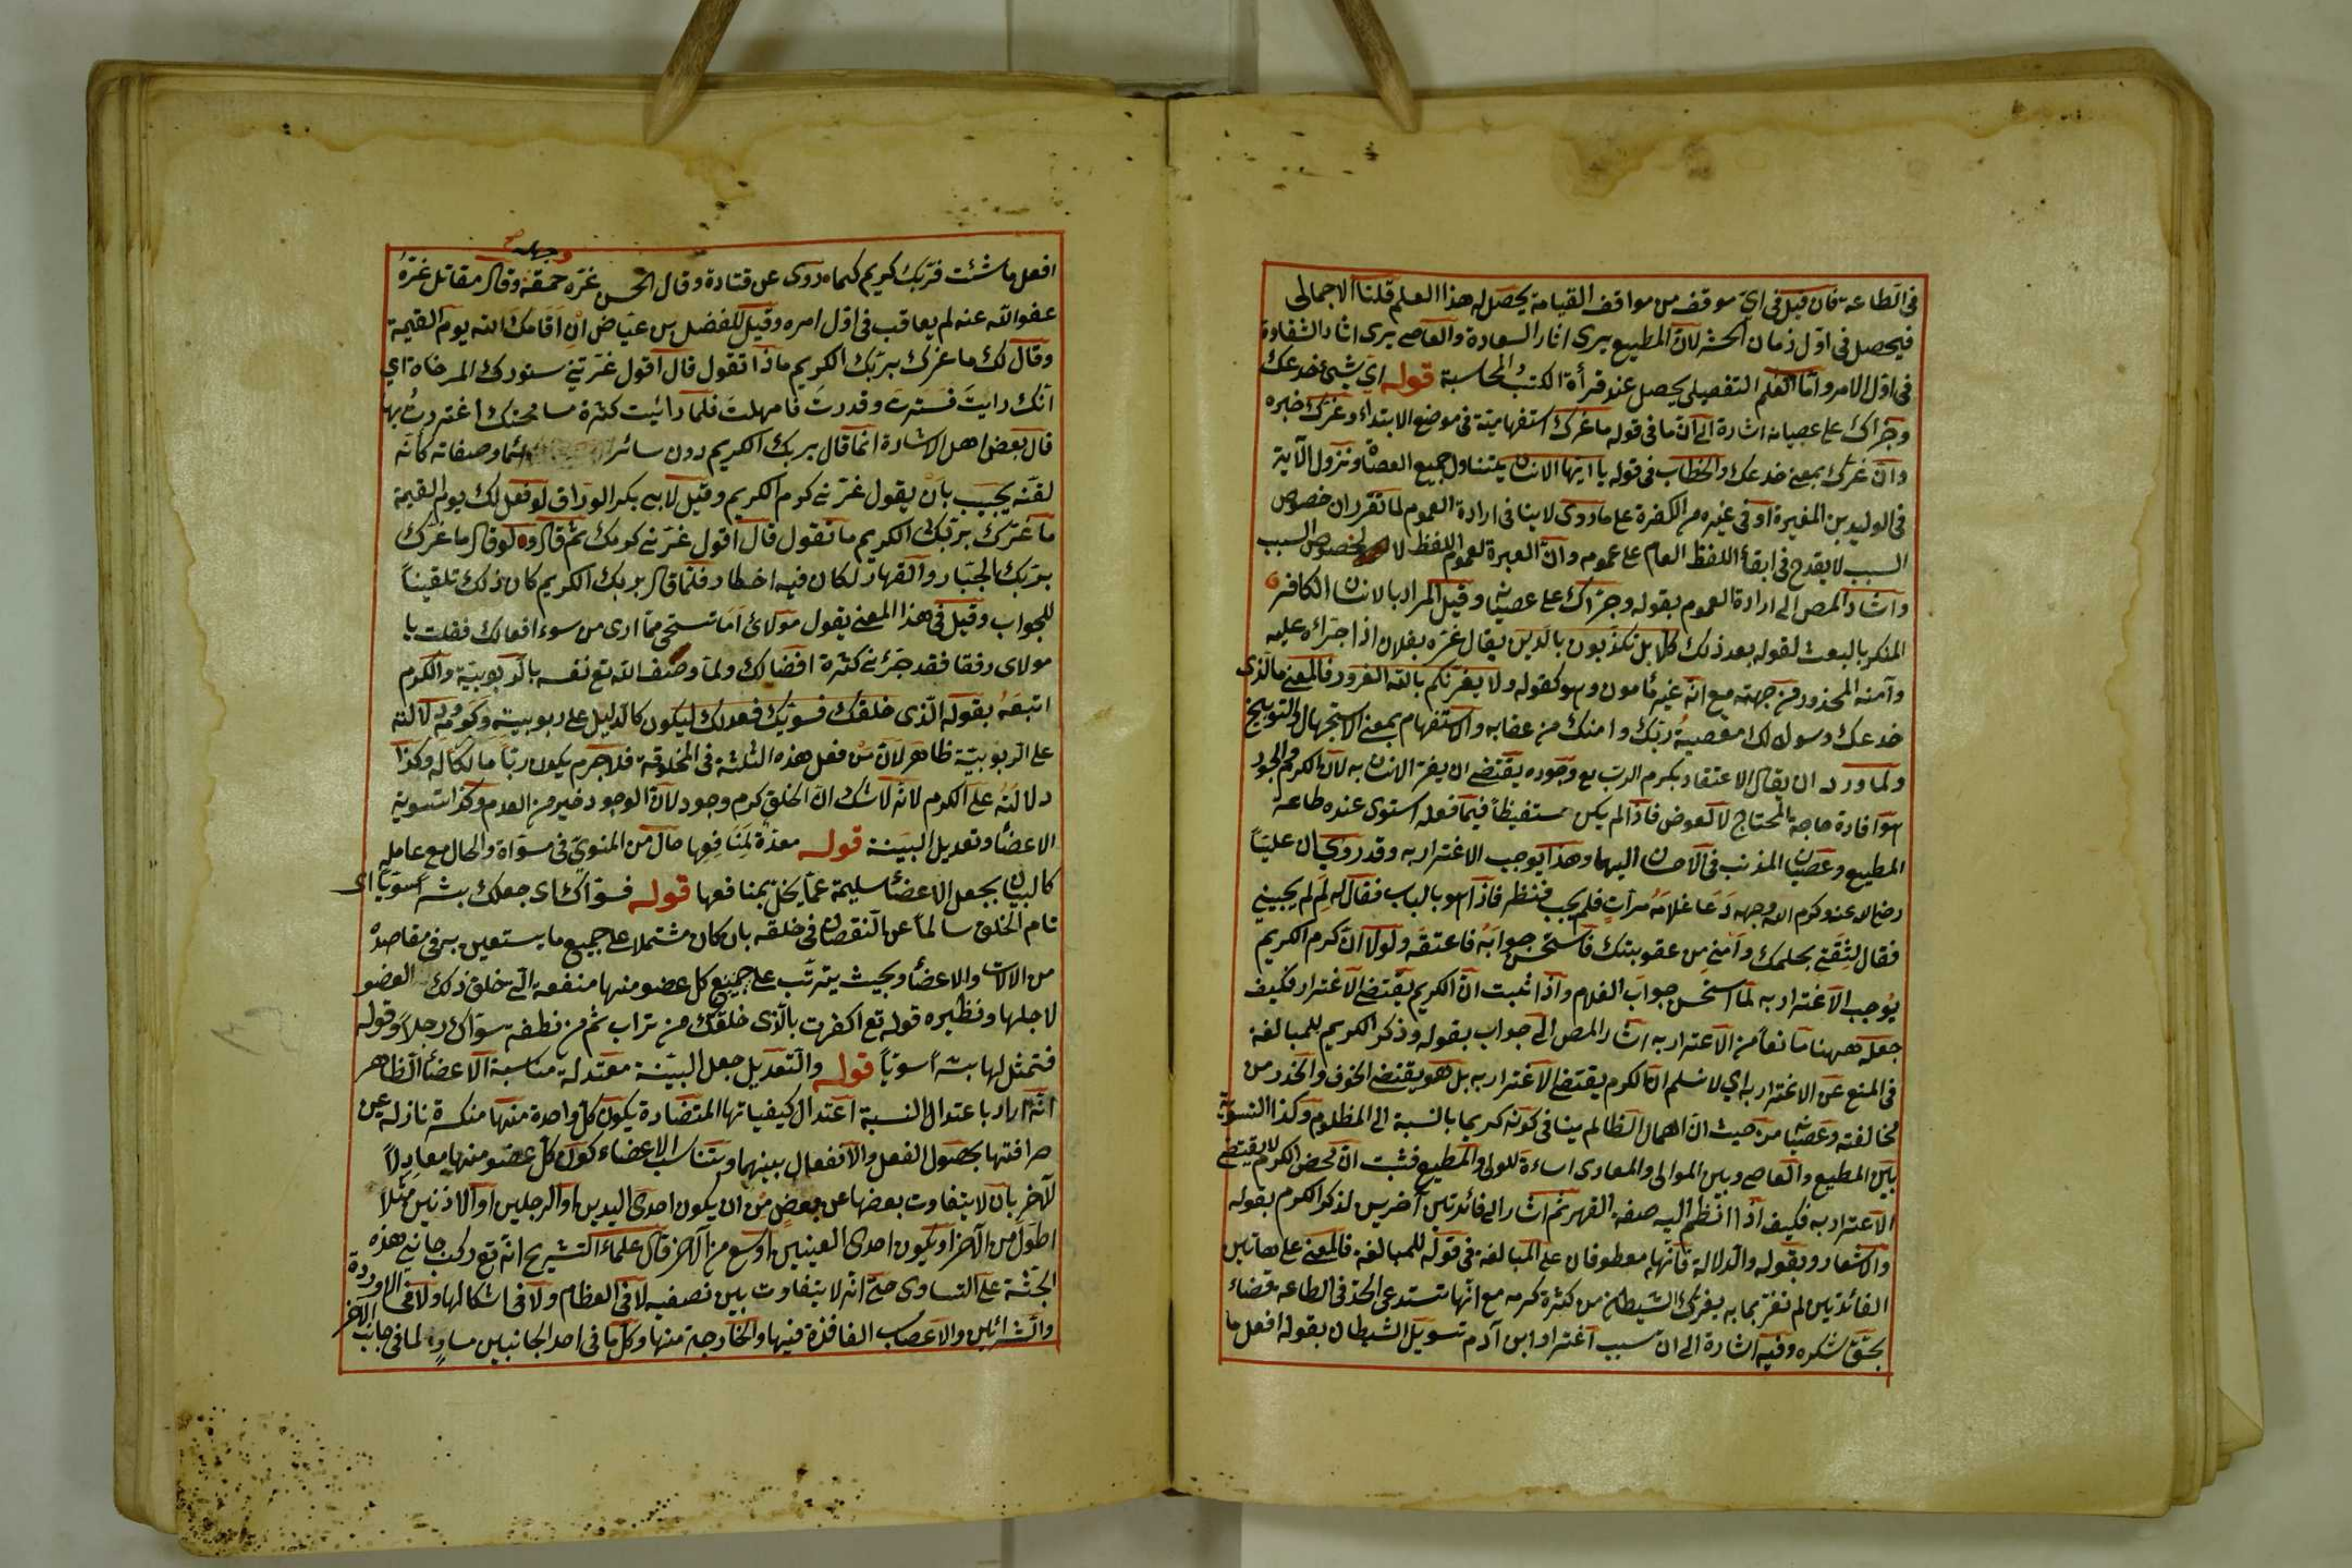 في الطاعة فان قيل في اي موقف من مواقف القيامة يحصل له هذا العلم قلنا الاجمالي
فيحصل في اول زمان الحشر لان المطيع يرى اثار السعادة والعاصي يرى اثار الشقاوة
في اول الامر واما العلم التفصيلي يحصل عند قرأة الكتب والمحاسبة قوله اي شئ خدعك
وجرّاك على عصيانه اشارة الى ان ما في قوله ما غرك استفهامية في موضع الابتداء وغرك خبره
وان غرك بمعنى خدعك والخطاب في قوله يا ايها الانسان يتناول جميع العصاة ونزول الآية
في الوليد بن المغيرة او في غيره من الكفرة على ما روى لا ينافي ارادة العموم لما تقرر ان خصوص
السبب لا يقدح في ابقاء اللفظ العام على عمومه وان العبرة لعموم اللفظ لا لخصوص السبب
واشار المص الى ارادة العموم بقوله وجرّاك على عصيانه وقيل المراد بالانسان الكافر
المنكر بالبعث لقوله بعد ذلك كلا بل تكذبون بالدين يقال غره بفلان اذا جرّاه عليه
وآمنه المحذور من جهته مع انه غير مأمون وهو كقوله ولا يغرنكم بالله الغرور فالمعنى ما الذي
خدعك وسول لك معصية ربك وامنك من عقابه والاستفهام بمعنى الاستجهال والتوبيخ
ولما ورد ان يقال الاعتقاد بكرم الرب تع وجوده يقتضي ان يغتر الانسان به لان الكرم والجود
هو افادة حاجة المحتاج لا لعوض فاذا لم يكن مستفيظاً فيما فعله استوى عنده طاعة
المطيع وعصيان المذنب في الاحسان اليهما وهذا يوجب الاغترار به وقد روي ان علياً
رضي الله عنه وكرم الله وجهه دعا غلامه مرات فلم يجب فنظر فاذا هو بالباب فقال له لم لم يجيبني
فقال لثقتي بحلمك وأمني من عقوبتك فاستحسن جوابه فاعتقه ولولا ان كرم الكريم
يوجب الاغترار به لما استحسن جواب الغلام واذا ثبت ان الكريم يقتضي الاغترار فكيف
جعله ههنا مانعاً من الاغترار به اشار المص الى جواب بقوله وذكر الكريم للمبالغة
في المنع عن الاغترار به اي لا نسلم ان الكرم يقتضي الاغترار به بل هو يقتضي الخوف والحذر من
مخالفته وعصيانه من حيث ان اهمال الظالم ينافي كونه كريما بالنسبة الى المظلوم وكذا التسوية
بين المطيع والعاصي وبين الموالي والمعادى اساءة للولي والمطيع فثبت ان محض الكرم لا يقتضي
الاغترار به فكيف اذا انظم اليه صفة القهر ثم اشار الى فائدتين آخريين لذكر الكرم بقوله
والاشعار وبقوله والدلالة فانهما معطوفان على المبالغة في قوله للمبالغة فالمعنى على هاتين
الفائدتين لم تغتر بما به يغرك الشيطان من كثرة كرمه مع انها تستدعي الجد في الطاعة قضاء
بحق شكره وفيه اشارة الى ان سبب اغترار ابن آدم تسويل الشيطان بقوله افعل ما
وجهله صح
افعل ما شئت فربك كريم كما روى عن قتادة وقال الحسن غره حمقه وقال مقاتل غره
عفو الله عنه لم يعاقب في اول امره وقيل للفضل بن عياض ان اقامك الله يوم القيمة
وقال لك ما غرك بربك الكريم ماذا تقول قال اقول غرتني ستورك المرخاة اي
انك رايت فسترت وقدرت فامهلت فلما رائيت كثرة مسامحتك اغتررت بها
قال بعض اهل الاشارة انما قال بربك الكريم دون سائر اسمائه وصفاته كأنه
لقنه يجيب بان يقول غرني كرم الكريم وقيل لابي بكر الوراق لو فعل لك يوم القيمة
ما غرك بربك الكريم ما تقول قال اقول غرني كرمك ثم قال ولو قال ما غرك
بربك الجبار والقهار لكان فيه اخطار فلما قال بربك الكريم كان ذلك تلقيناً
للجواب وقيل في هذا المعنى يقول مولائ اما تستحي مما ارى من سوء افعالك فقلت يا
مولاى رفقا فقد جرّني كثرة افضالك ولما وصف الله تع نفسه بالربوبية والكرم
اتبعه بقوله الذي خلقك فسويك فعدلك ليكون كالدليل على ربوبيته وكرمه ودلالته
على الربوبية ظاهر لان من فعل هذه الثلثة في المخلوقة فلا جرم يكون رباً مالكاً له وكذا
دلالته على الكرم لانه لا شك ان الخلق كرم وجود لان الوجود خير من العدم وكذا تسوية
الاعضاء وتعديل البينة قوله معدة لمنافعها حال من المنوي في مسواة والحال مع عامله
كالبيان بجعل الاعضاء سليمة عما يخل بمنافعها قوله فسواك اى جعلك بشراً سوياً اى
تام الخلق سالماً عن النقصان في خلقه بان كان مشتملا على جميع ما يستعين به في مقاصده
من الالات والاعضاء وبحيث يترتب على جميع كل عضو منها منفعة التي خلق ذلك العضو
لاجلها ونظيره قوله تع اكفرت بالذي خلقك من تراب ثم من نطفة سواك رجلا وقوله
فتمثل لها بشراً سوياً قوله والتعديل جعل البينة معتدلة مناسبة الاعضاء الظاهر
انه اراد باعتدال النسبة اعتدال كيفياتها المتضادة يكون كل واحدة منها منكسرة نازلة عن
صرافتها بحصول الفعل والانفعال بينهما وبتناسب الاعضاء كون كل عضو منها معادلاً
لآخر بان لا يتفاوت بعضها عن بعض من ان يكون احدى اليدين او الرجلين او الاذنين مثلاً
اطول من الآخر او يكون احدى العينين اوسع من الآخر قال علماء التشريح انه تع ركب جانبي هذه
الجثة على التساوى حتى انه لا يتفاوت بين نصفيه لا في العظام ولا في اشكالها ولا في الاوردة
والشرائين والاعصاب النافذة فيها والخارجة منها وكل ما في احد الجانبين مساوٍ لما في جانب الآخر